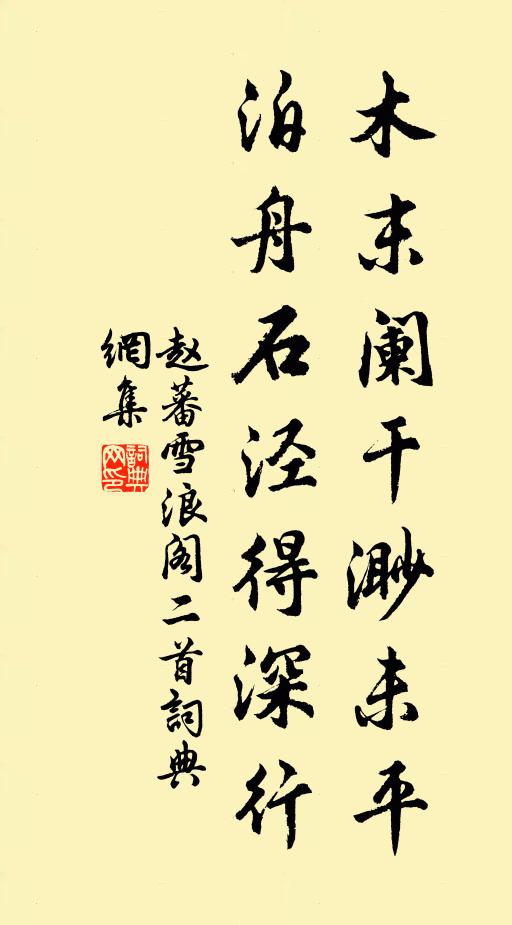 木末阑干渺未平
泊舟石泾得深行
赵蕃雪浪阁二首詞典
網集
詞典
网印